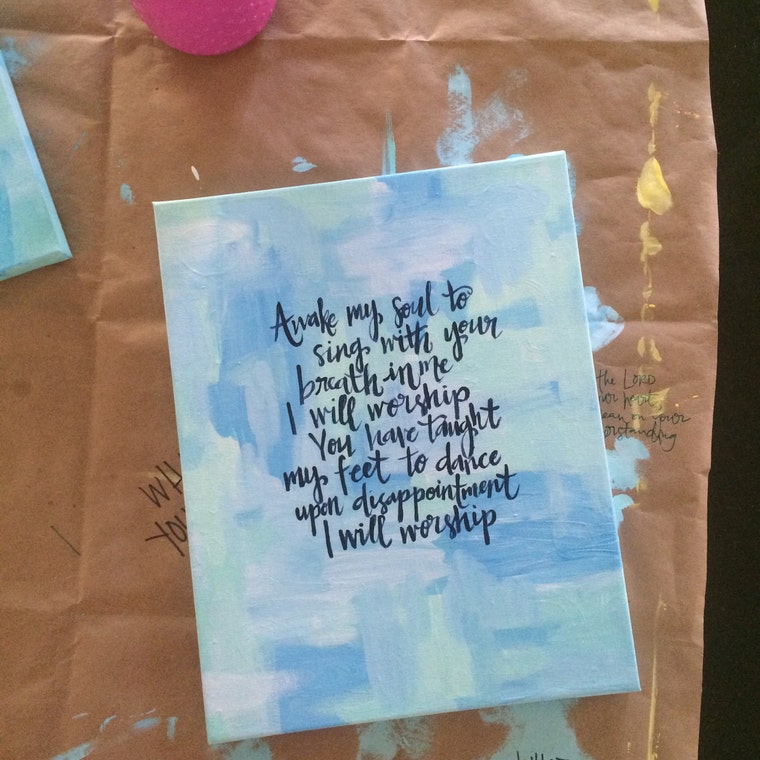 Awake my soul to
sing with your
breath in me
I will worship
You have taught
my feet to dance
upon disappointment
I will worship
the LORD
your heart,
lean on your
erstanding
WH
YOU